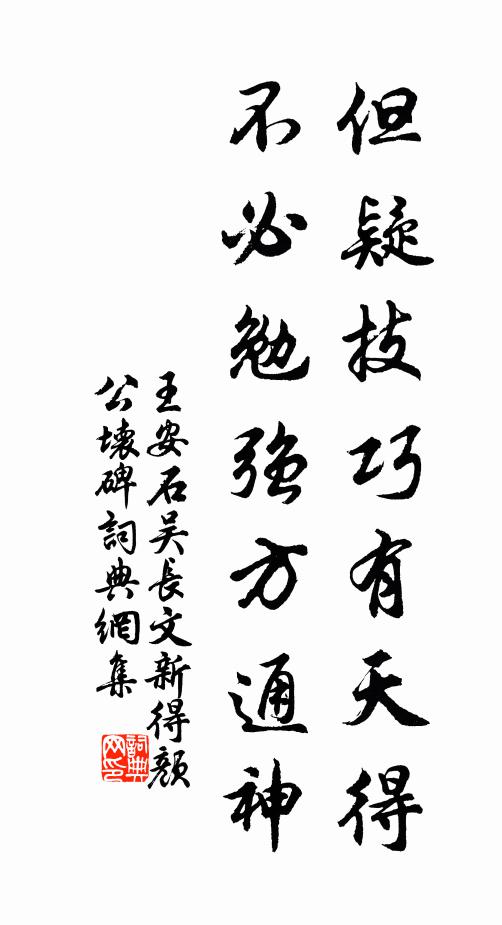 但疑技巧有天得
不必勉強方通神
王安石吳長文新得顏
公壞碑詞典網集
詞典
网印